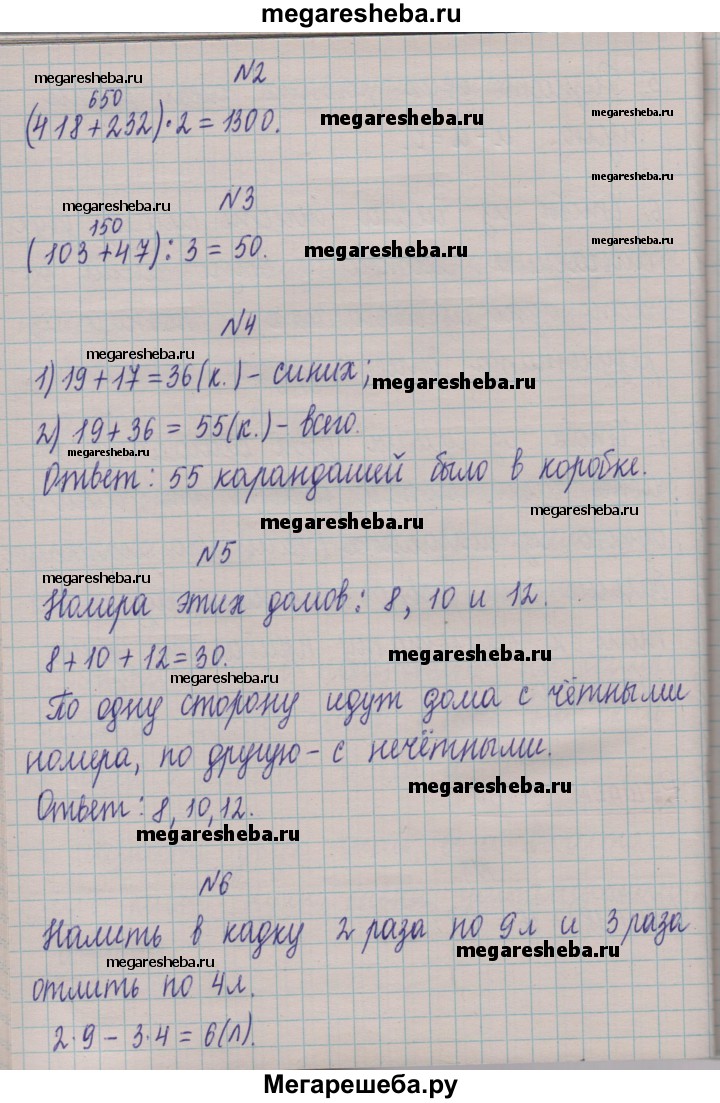 megaresheba.ru
megaresheba.ru
N2
650
(418+232)·2=1300.
megaresheba.ru
megaresheba.ru
megaresheba.ru
N3
150
(103+47):3=50.
megaresheba.ru
megaresheba.ru
N4
megaresheba.ru
1) 19+17=36(к.)- синих;
megaresheba.ru
2) 19+36=55(к.)- всего.
megaresheba.ru
Ответ: 55 карандашей было в коробке.
megaresheba.ru
megaresheba.ru
N5
megaresheba.ru
Номера этих домов: 8, 10 и 12.
8+10+12=30.
megaresheba.ru
megaresheba.ru
По одну сторону идут дома с чётными
номера, по другую - с нечётными.
megaresheba.ru
Ответ: 8, 10, 12.
megaresheba.ru
N6
Налить в кадку 2 раза по 9л и 3 раза
megaresheba.ru
megaresheba.ru
отлить по 4л.
2·9-3·4=6(л).
Мегарешеба.ру